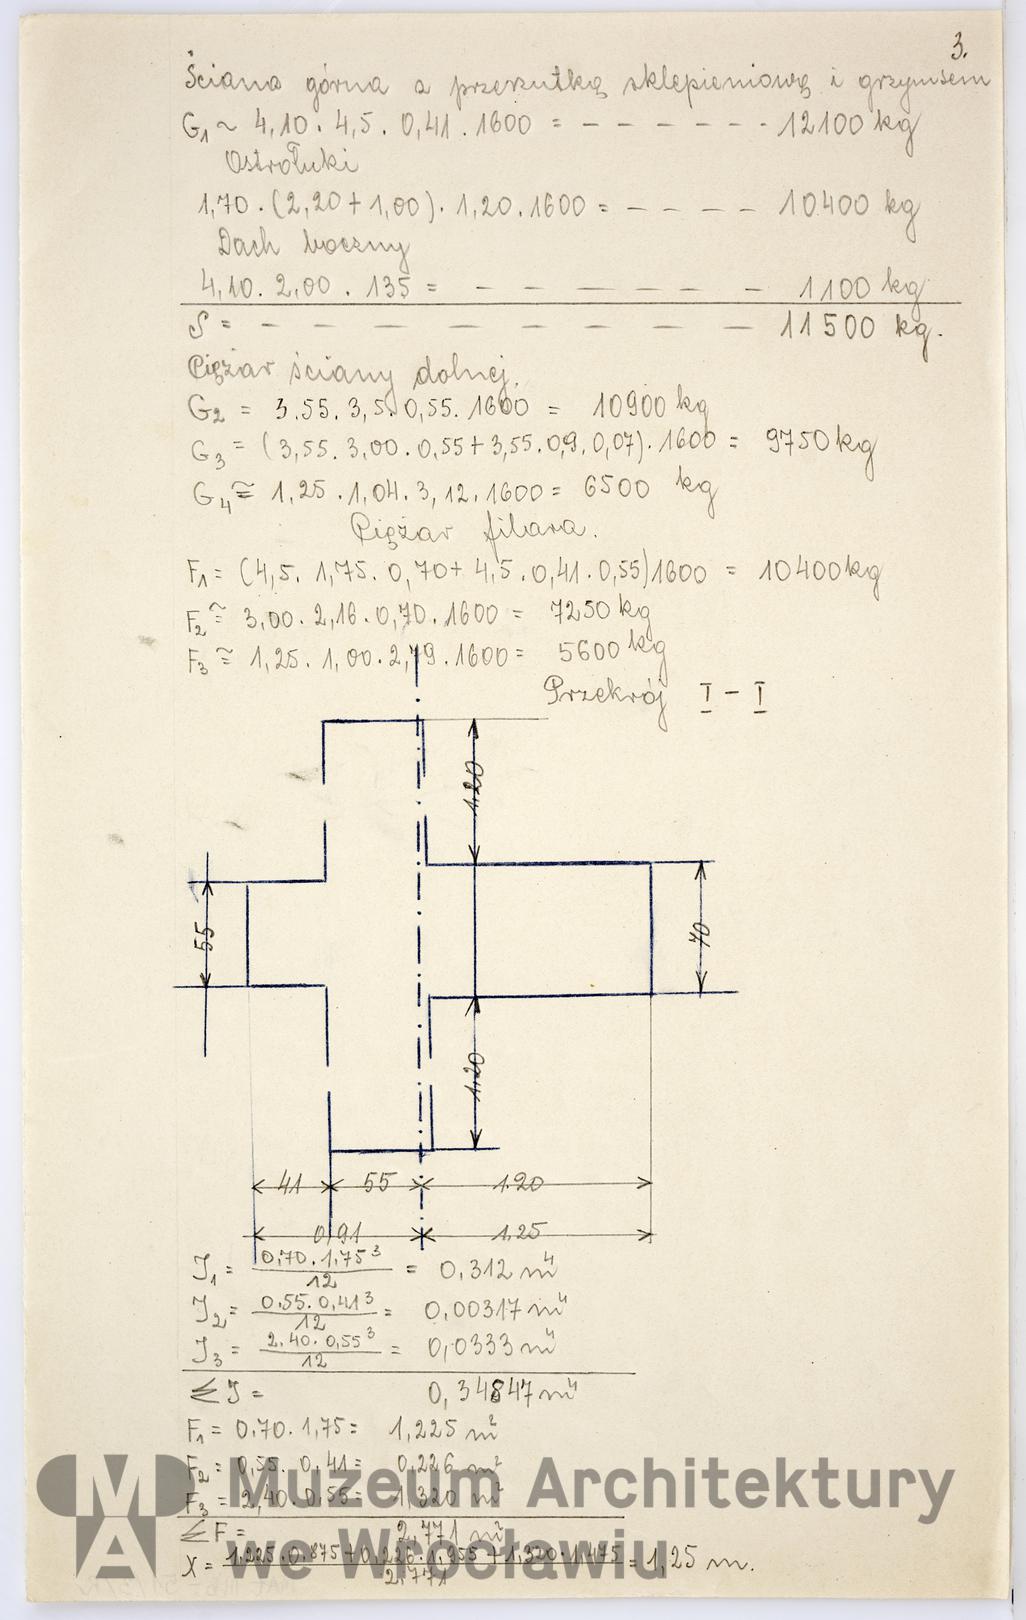 3.
Ściana górna z przerzutką sklepieniową i grzymsem
G1 ~ 4,10 . 4,5 . 0,41 . 1600 = - - - - - - - 12100 kg
Ostrołuki
1,70 . (2,20 + 1,00) . 1,20 . 1600 = - - - - 10400 kg
Dach boczny
4,10 . 2,00 . 135 = - - - - - - - 1100 kg
S = - - - - - - - - - 11500 kg.
Ciężar ściany dolnej.
G2 = 3.55 . 3,5 . 0,55 . 1600 = 10900 kg
G3 = (3,55 . 3,00 . 0,55 + 3,55 . 0,9 . 0,07) . 1600 = 9750 kg
G4 ≅ 1,25 . 1,04 . 3,12 . 1600 = 6500 kg
Ciężar filara.
F1 = (4,5 . 1,75 . 0,70 + 4,5 . 0,41 . 0,55) 1600 = 10400 kg
F2 ≅ 3,00 . 2,16 . 0,70 . 1600 = 7250 kg
F3 ≅ 1,25 . 1,00 . 2,79 . 1600 = 5600 kg
Przekrój I - I
1.20
55
70
1.20
41 55 1.20
0,91 1.25
J1 = 0,70 . 1,75³ / 12 = 0,312 m⁴
J2 = 0.55 . 0,41³ / 12 = 0,00317 m⁴
J3 = 2,40 . 0,55³ / 12 = 0,0333 m⁴
Σ J = 0,34847 m⁴
F1 = 0,70 . 1,75 = 1,225 m²
F2 = 0,55 . 0,41 = 0,226 m²
F3 = 2,40 . 0,55 = 1,320 m²
Σ F = 2,771 m²
X = 1,225 . 0,875 + 0,226 . 1,955 + 1,320 . 1,475 / 2,771 = 1,25 m.
Muzeum Architektury
we Wrocławiu
MA